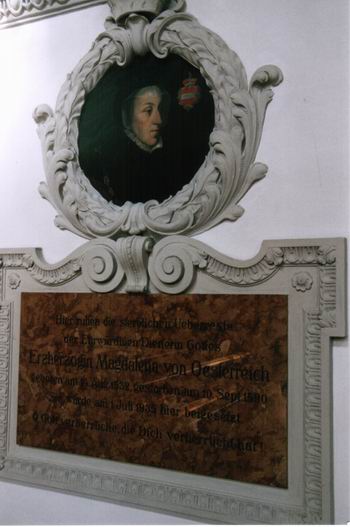 Hier ruhen die sterblichen Ueberreste
der Ehrwürdigen Dienerin Gottes
Erzherzogin Magdalena von Oesterreich
geboren am 14. Aug. 1532, gestorben am 10. Sept. 1590
Sie wurde am 1. Juli 1939 hier beigesetzt
O Gott verherrliche, die Dich verherrlicht hat!